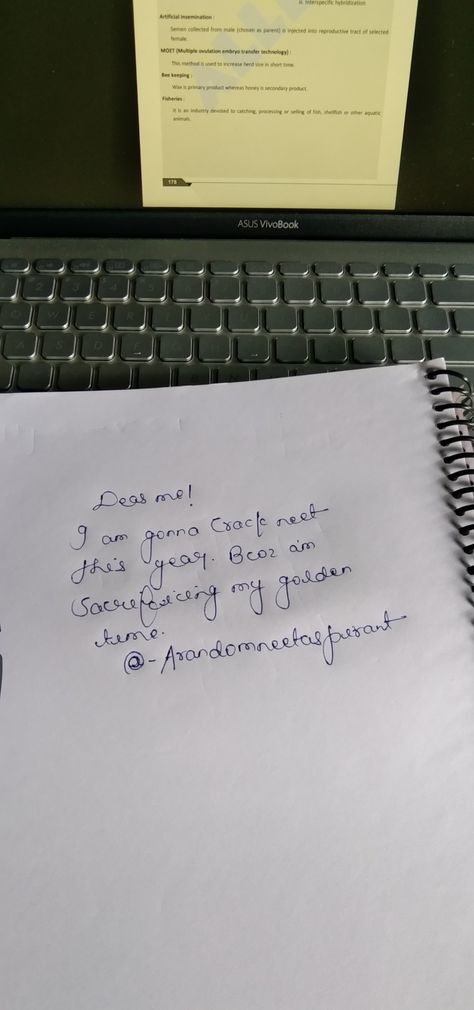 iii. Interspecific hybridization
Artificial insemination :
Semen collected from male (chosen as parent) is injected into reproductive tract of selected
female.
MOET (Multiple ovulation embryo transfer technology) :
This method is used to increase herd size in short time.
Bee keeping :
Wax is primary product whereas honey is secondary product.
Fisheries :
It is an industry devoted to catching, processing or selling of fish, shellfish or other aquatic
animals.
178
ASUS VivoBook
2 3 4
W E R
A S D F
Dear me!
I am gonna Crack neet
this year. Bcoz a'm
Sacrificing my golden
time.
@-Arandomneetaspirant